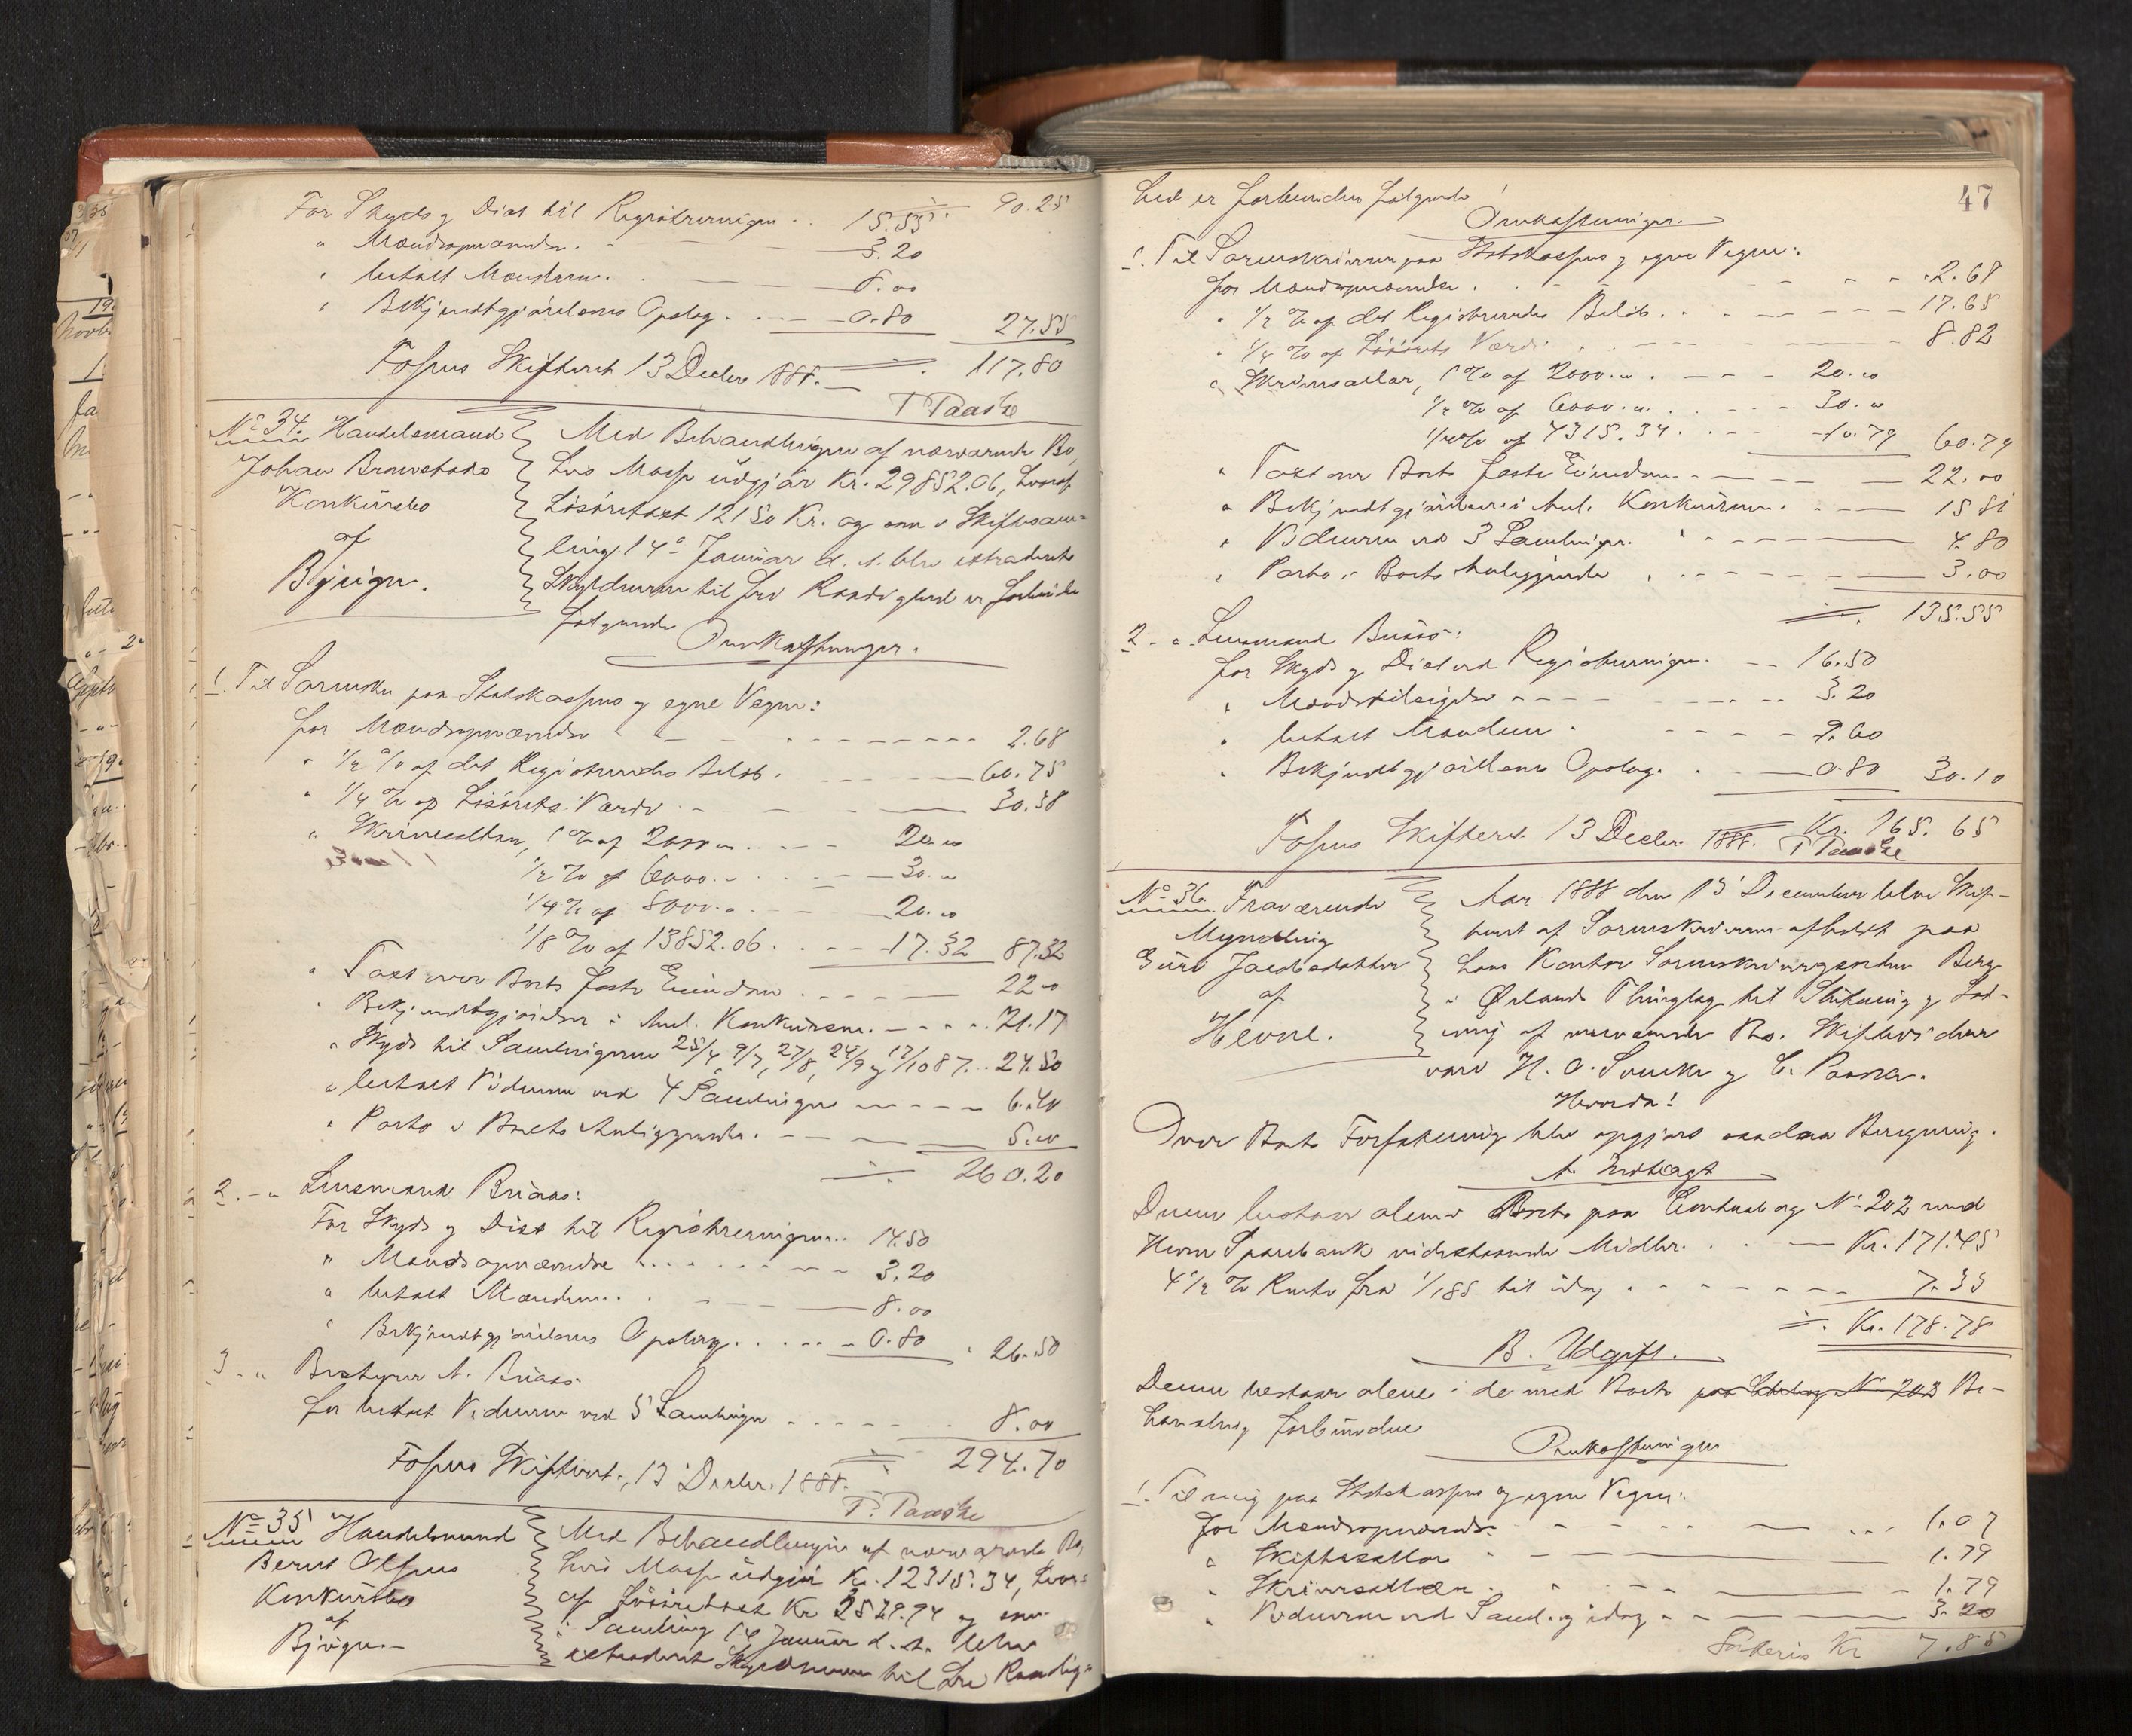 90.25
For Skyds og Diæt til Registreringen . 15.55
" Mændsopnævnelse. - 3.20
" betalt Mændene. 8.00
" Bekjendtgjörelsens Opslag . 0.80 27.55
Fosens Skifteret 13 Decbr 1888. 117.80
T Paaske
No 34. Handelsmand
Johan
Konkursbo
af
Bjugn.
Med Behandlingen af nærværende Bo,
hvis Masse udgjör Kr. 29852.06, hvoraf
Lösöretaxt 12150 Kr. og som i Skiftesam-
ling 14de Januar d. A. blev extraderet
Skyldneren til fri Raadighed er forbundet
fölgende
Omkostninger.
1. Til Sorenskr paa Statskassens og egne Vegne:
for Mændsopnævnelse 2.68
" 1/2 % af det Registrerede Belöb. 60.75
" 1/4 % af Lösörets Værdi 30.38
" Skriversallær, 1 % af 2000 20.00
1/2 % af 6000 30.00
1/4 % af 8000 20.00
1/8 % af 13852.06. 17.32 87.32
" Taxt over Boets faste Eiendom 22.00
" Bekjendtgjörelser i Anl. Konkursen. 21.17
" Skyds til Samlingerne 25/4, 9/7, 27/8, 24/9 og 17/10 87. 24.50
" betalt Vidnerne ved 4 Samlinger 6.40
" Porto i Boets Anliggender. 5.00
260.20
2. - " Lensmand
For Skyds og Diæt til Registreringen.. 14.50
" Mændsopnævnelse 3.20
" betalt Mændene. 8.00
" Bekjendtgjörelsens Opslag. 0.80 26.50
3. - " Bestyrer A.
for betalt Vidnerne ved 5 Samlinger 8.00
Fosens Skifteret, 13 Decbr. 1888. 294.70
T. Paaske
No 35 Handelsmand
Bernt Olsens
Konkursbo
af
Bjugn.
Med Behandlingen af nærværende Bo,
hvis Masse udgjör Kr. 12315.34, hvor-
af Lösöretaxt Kr 3529.94 og som
i Samling 14 Januar d. A. blev
extraderet Skyldneren til fri Raadig-
47
hed er forbunden fölgende
Omkostninger.
1. Til Sorenskriveren paa Statskassens og egne Vegne:
for Mændsopnævnelse . 2.68
" 1/2 % af det Registrerede Belöb. 17.65
" 1/4 % af Lösörets Værdi 8.82
" Skriversallær, 1 % af 2000.00 . 20.00
1/2 % af 6000.00. 30.00
1/4 % af 4315.34. 10.79 60.79
" Taxt over Boets faste Eiendom. 22.00
" Bekjendtgjörelser i Anl. Konkursen. 15.81
" Vidnerne ved 3 Samlinger. 4.80
" Porto i Boets Anliggender . 3.00
135.55
2. - " Lensmand
for Skyds og Diæt ved Registreringen. 16.50
" Mændstilsigelse 3.20
" betalt Mændene. 9.60
" Bekjendtgjörelsens Opslag. 0.80 30.10
Fosens Skifteret 13 Decbr. 1888. Kr. 165.65
T Paaske
No 36. Fraværende
Myndling
Guri Jacobsdatter
af
Hevne.
Aar 1888 den 15 December blev Skif-
teret af Sorenskriveren afholdt paa
hans Kontor Sorenskrivergaarden Berg
i Ørlands Thinglag til Slutning og Lod-
ning af nærværende Bo. Skiftevidner
vare H. O. og C. Paaske.
Hvorda!
Over Boets Forfatning blev opgjort saadan Beregning.
A. Indtægt
Denne bestaar alene i Boets paa Contrabog No 202 med
Hevne Sparebank indestaaende Midler. Kr. 171.45
4 1/2 % Rente fra 1/1 88 til idag 7.33
Kr. 178.78
B. Udgift.
Denne bestaar alene i de med Boets paa No 203 Be-
handling forbundne
Omkostninger
1. Til mig paa Statskassens og egne Vegne:
for Mændsopnævnelse. 1.07
" Skiftesallær 1.79
" Skriversallær. 1.79
" Vidnerne ved Samling idag 3.20
Lateris Kr 7.85